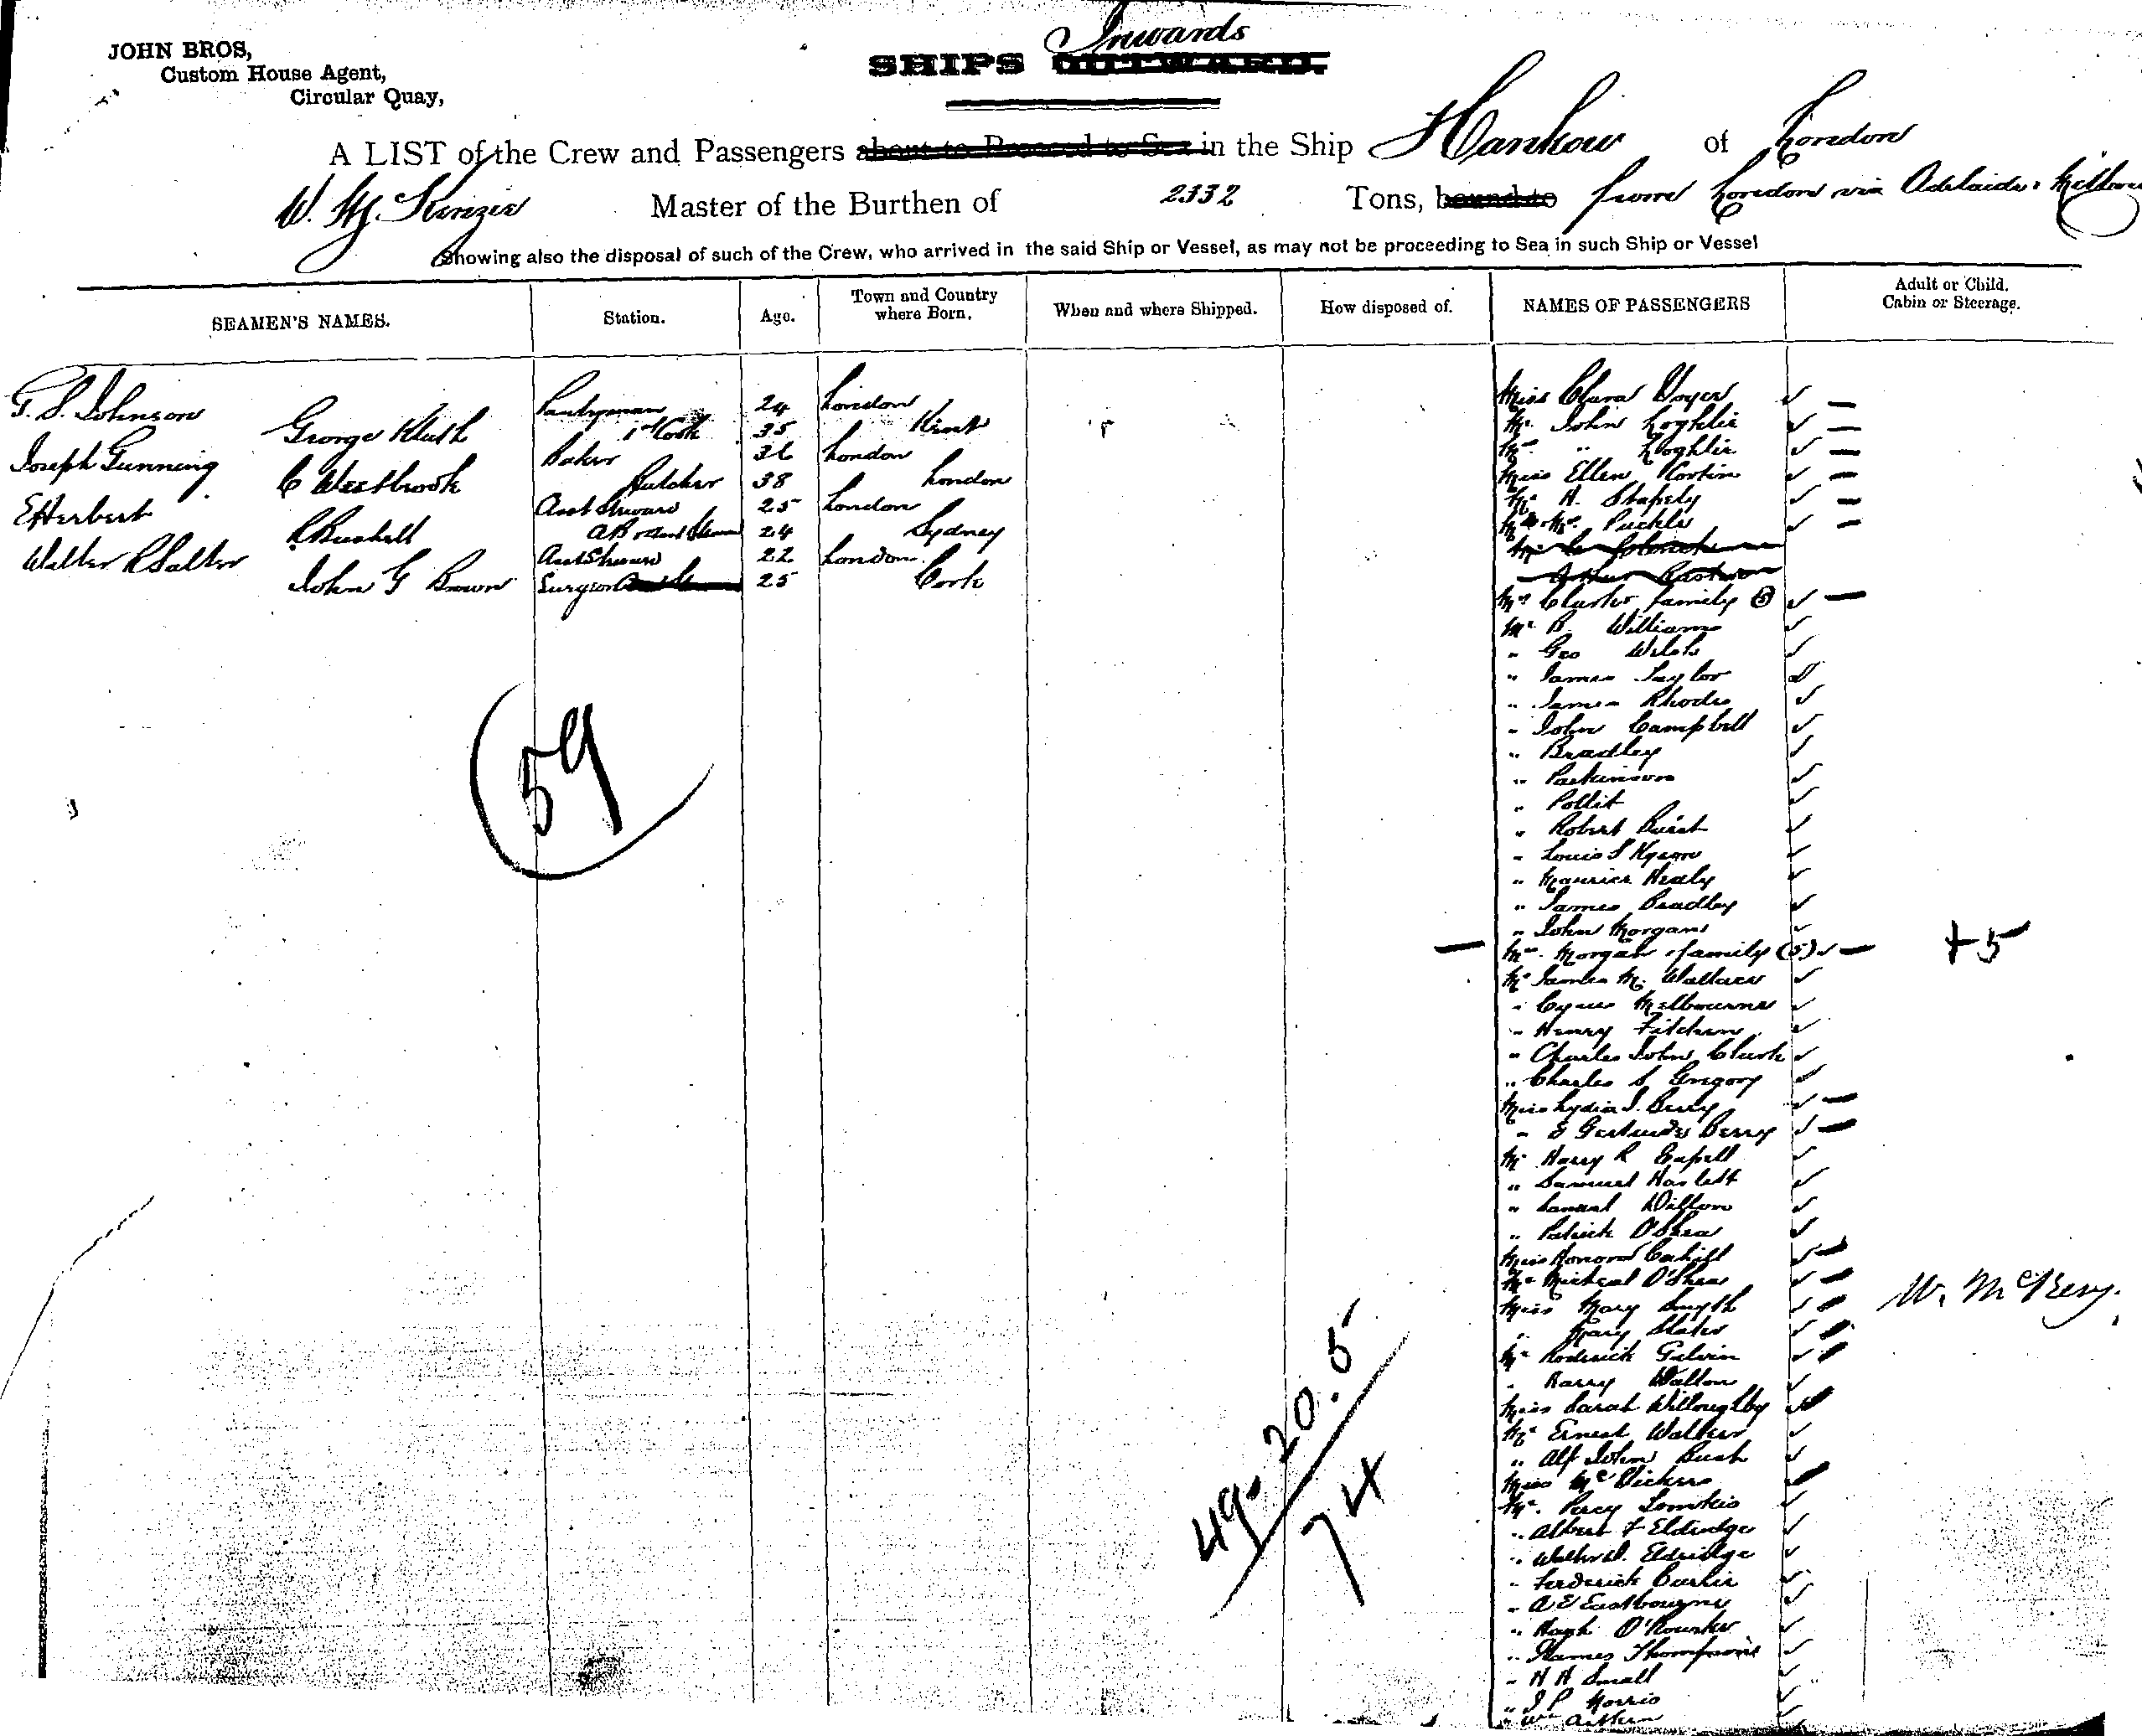 JOHN BROS,
Custom House Agent,
Circular Quay,
Inwards
SHIPS OUTWARD.
A LIST of the Crew and Passengers about to Proceed to Sea in the Ship Hankow of London
W. McKenzie Master of the Burthen of 2332 Tons, bound to from London via Adelaide &
Showing also the disposal of such of the Crew, who arrived in the said Ship or Vessel, as may not be proceeding to Sea in such Ship or Vessel
SEAMEN'S NAMES. Station. Age. Town and Country where Born. When and where Shipped. How disposed of. NAMES OF PASSENGERS Adult or Child. Cabin or Steerage.
Johnson Pantryman 24 London
George 1st Cook 35 Kent
Joseph Gunning Baker 36 London
C Westbrook Butcher 38 London
E Herbert Asst Steward 25 London
24 Sydney
Walter R Salter Asst Steward 22 London
John G Brown Surgeon 25 Cork
59
Miss Clara
Mr. John Loghlin
Mrs. " Loghlin
Miss Ellen
Mr H. Stapely
Mr & Mrs. Puckle
Mrs family (5)
Mr B. Williams
" Geo
" James Taylor
" James Rhodes
" John Campbell
" Bradley
" Parkinson
" Pollit
" Robert
" Louis S
" Maurice Healy
" James Bradley
" John Morgans
Mrs. Morgan & family (5) + 5
Mr James M. Wallace
" Melbourne
" Henry
" Charles John Clark
" Charles S. Gregory
Miss Lydia J. Berry
" E Gertrude Berry
Mr Harry R Capell
" Samuel Haslett
" Samuel Dillon
" Patrick O'Shea
Miss Honora Cahill
Mr Micheal O'Shea
Miss Mary Smyth W. McKezy.
" Mary Slater
Mr Roderick Galvin
" Harry Walton
Miss Sarah Willoughby
Mr Ernest Walker
" Alf John Bush
Miss Mc Vickers
Mr. Percy Tomkies
" Albert F Eldridge
" Walter D. Eldridge
" Frederick
" A E Eastbourne
" Hugh O'Rourke
" James Thompson
" H H Small
" J P Morris
" Wm Aitken
49. 20. 5
74